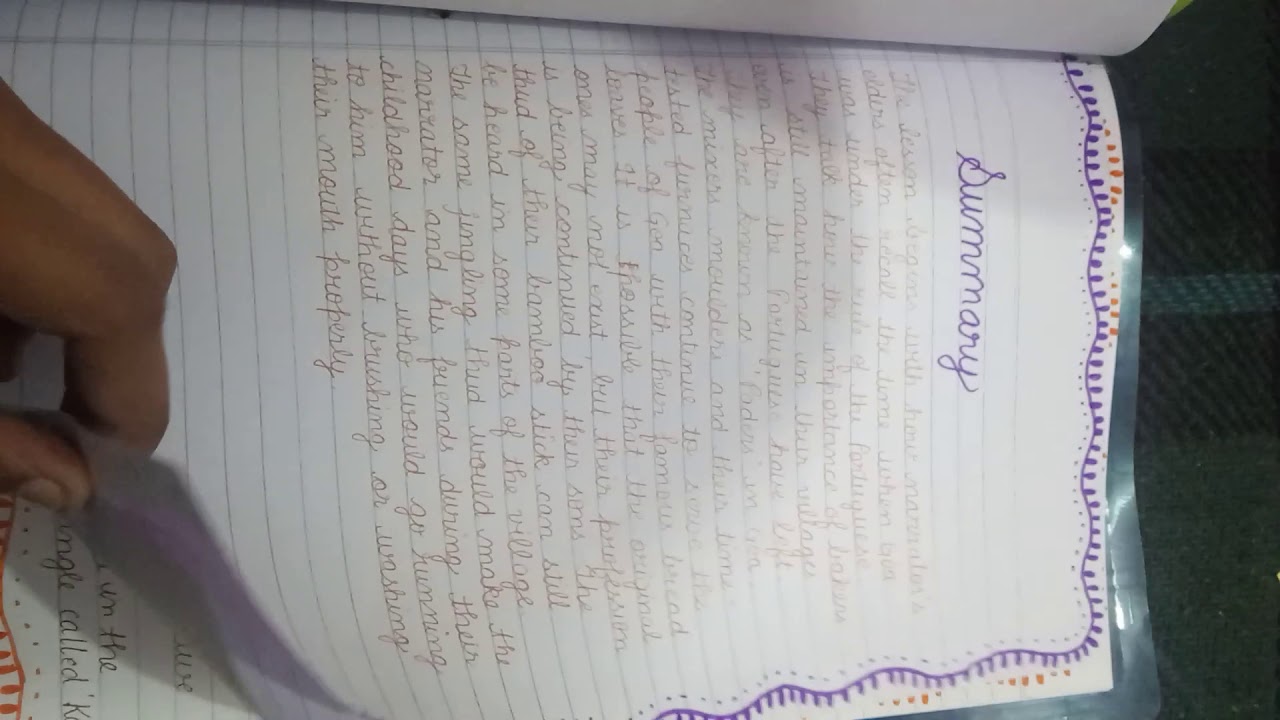 Summary
The lesson begins with how narrator's
elders often recall the time when Goa
was under the rule of the Portuguese
They tell how the importance of bakers
is still maintained in their villages
even after the Portugues have left
They are known as 'Paders' in Goa
The mixers moulders and their time
tested furnices continue to serve the
people of Goa with their famous bread
loaves It is possible that the original
ones may not exist but their profession
is being continued by their sons The
thud of their bamboo stick can still
be heard in some parts of the village
The same jingling thud would make the
narrator and his friends during their
childhood days who would go running
to him without brushing or washing
their mouth properly
use
in the
ingle called 'K